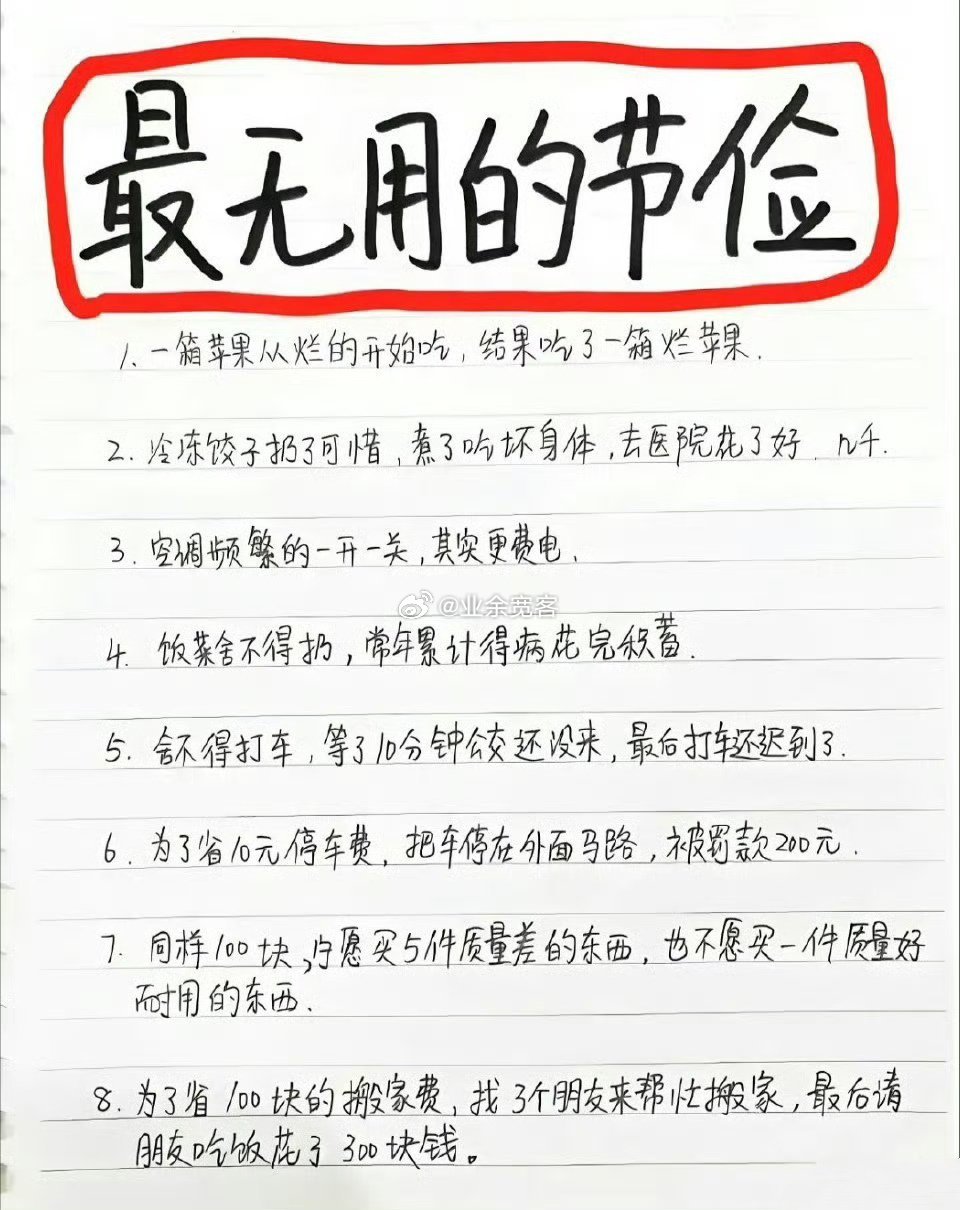 最无用的节俭
1. 一箱苹果从烂的开始吃，结果吃了一箱烂苹果.
2. 冷冻饺子扔了可惜，煮了吃坏身体，去医院花了好.几千.
3. 空调频繁的一开一关，其实更费电.
@业余宽客
4. 饭菜舍不得扔，常年累计得病花完积蓄.
5. 舍不得打车，等了10分钟公交还没来，最后打车还迟到了.
6. 为了省10元停车费，把车停在外面马路，被罚款200元.
7. 同样100块，宁愿买5件质量差的东西，也不愿买一件质量好
耐用的东西.
8. 为了省100块的搬家费，找3个朋友来帮忙搬家，最后请
朋友吃饭花了300块钱。